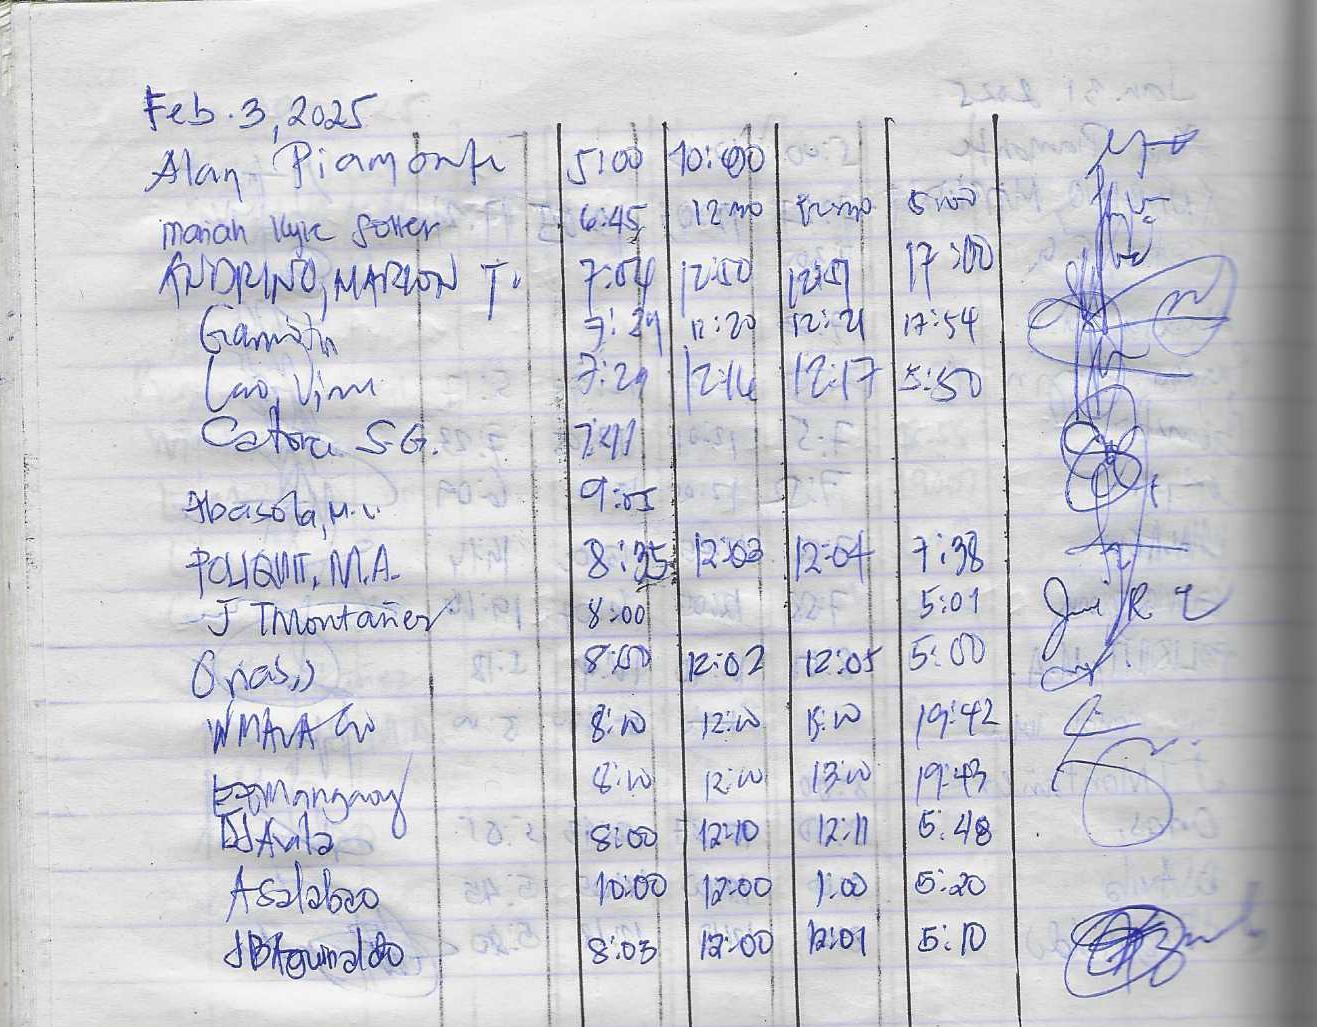 Feb. 3, 2025
Alan Piamonte 5:00 10:00
Mariah Kyle Soller 6:45 12:00 5:00
ANDRINO, MARLON T. 7:04 12:50 12:51 17:00
7:29 12:20 12:21 17:54
Lao, Vim 7:29 12:16 12:17 5:50
Catora S.G. 7:41
Abasola, M. 9:05
POLIQUIT, M.A. 8:35 12:03 12:04 7:38
J TMontañez 8:00 5:01
Orias, J 8:00 12:02 12:05 5:00
8:10 12:10 19:42
Mangaoy 8:10 12:10 13:10 19:43
DJAvila 8:00 12:10 12:11 5:48
ASalabao 10:00 12:00 1:00 5:20
JBAguinaldo 8:03 12:00 12:01 5:10